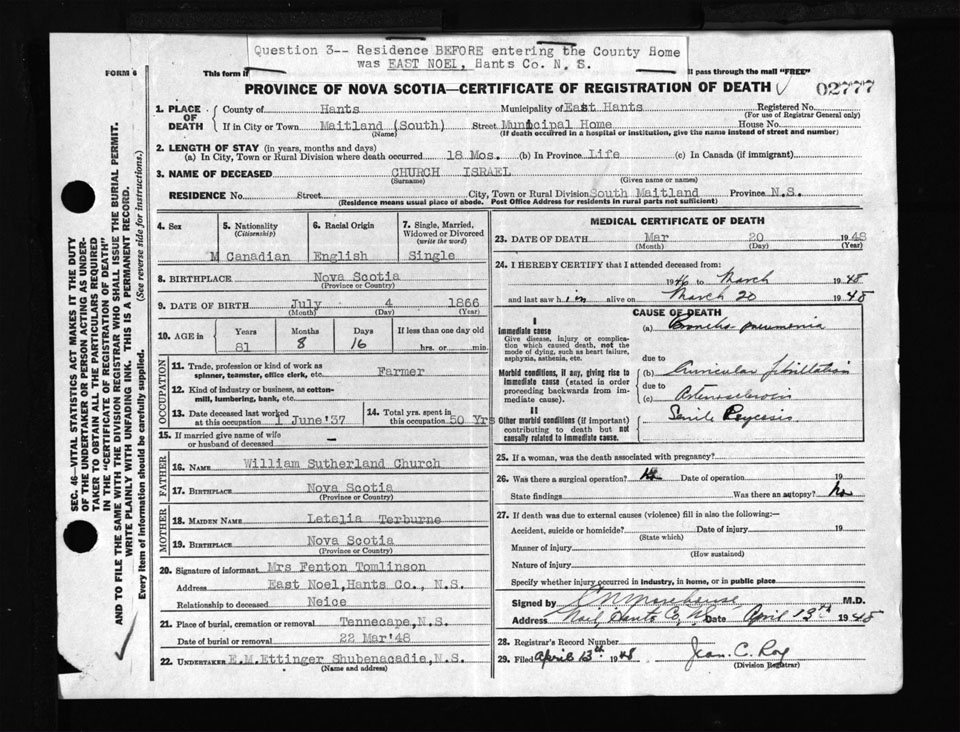 Question 3-- Residence BEFORE entering the County Home
was EAST NOEL, Hants Co. N. S.
FORM 6
This form if
ll pass through the mail "FREE"
PROVINCE OF NOVA SCOTIA—CERTIFICATE OF REGISTRATION OF DEATH 02777
1. PLACE OF DEATH
County of Hants Municipality of East Hants Registered No.
(For use of Registrar General only)
If in City or Town Maitland (South) Street Municipal Home House No.
(Name) (If death occurred in a hospital or institution, give the name instead of street and number)
2. LENGTH OF STAY (in years, months and days)
(a) In City, Town or Rural Division where death occurred 18 Mos. (b) In Province Life (c) In Canada (if immigrant)
3. NAME OF DECEASED CHURCH ISRAEL
(Surname) (Given name or names)
RESIDENCE No. Street City, Town or Rural Division South Maitland Province N.S.
(Residence means usual place of abode. Post Office Address for residents in rural parts not sufficient)
4. Sex 5. Nationality (Citizenship) 6. Racial Origin 7. Single, Married, Widowed or Divorced (write the word)
M Canadian English Single
8. BIRTHPLACE Nova Scotia
(Province or Country)
9. DATE OF BIRTH July 4 1866
(Month) (Day) (Year)
10. AGE in Years Months Days If less than one day old
81 8 16 hrs. or min.
OCCUPATION
11. Trade, profession or kind of work as spinner, teamster, office clerk, etc. Farmer
12. Kind of industry or business, as cotton-mill, lumbering, bank, etc.
13. Date deceased last worked at this occupation 1 June '37
14. Total yrs. spent in this occupation 50 Yrs
15. If married give name of wife or husband of deceased
FATHER
16. NAME William Sutherland Church
17. BIRTHPLACE Nova Scotia
(Province or Country)
MOTHER
18. MAIDEN NAME Letalia Terburne
19. BIRTHPLACE Nova Scotia
(Province or Country)
20. Signature of informant Mrs Fenton Tomlinson
Address East Noel, Hants Co., N.S.
Relationship to deceased Neice
21. Place of burial, cremation or removal Tennecape, N.S.
Date of burial or removal 22 Mar '48
22. UNDERTAKER E.M.Ettinger Shubenacadie, N.S.
(Name and address)
MEDICAL CERTIFICATE OF DEATH
23. DATE OF DEATH Mar 20 1948
(Month) (Day) (Year)
24. I HEREBY CERTIFY that I attended deceased from:
1946 to March 1948
and last saw him alive on March 20 1948
CAUSE OF DEATH
I
Immediate cause
Give disease, injury or complication which caused death, not the mode of dying, such as heart failure, asphyxia, asthenia, etc.
(a) Broncho pneumonia
due to
Morbid conditions, if any, giving rise to immediate cause (stated in order proceeding backwards from immediate cause).
(b) Auricular fibrillation
due to
(c) Arteriosclerosis
II
Other morbid conditions (if important) contributing to death but not causally related to immediate cause.
Senile Psycosis
25. If a woman, was the death associated with pregnancy?
26. Was there a surgical operation? No Date of operation 19
State findings Was there an autopsy? No
27. If death was due to external causes (violence) fill in also the following:—
Accident, suicide or homicide? Date of injury 19
(State which)
Manner of injury
(How sustained)
Nature of injury
Specify whether injury occurred in industry, in home, or in public place
Signed by M.D.
Address Noel, Hants Co, N.S. Date April 13th 1948
28. Registrar's Record Number
29. Filed April 13th 1948 Jean C. Roy
(Division Registrar)
SEC. 46—VITAL STATISTICS ACT MAKES IT THE DUTY
OF THE UNDERTAKER OR PERSON ACTING AS UNDER-
TAKER TO OBTAIN ALL THE PARTICULARS REQUIRED
IN THE "CERTIFICATE OF REGISTRATION OF DEATH"
AND TO FILE THE SAME WITH THE DIVISION REGISTRAR WHO SHALL ISSUE THE BURIAL PERMIT.
WRITE PLAINLY WITH UNFADING INK. THIS IS A PERMANENT RECORD.
Every item of information should be carefully supplied. (See reverse side for instructions.)